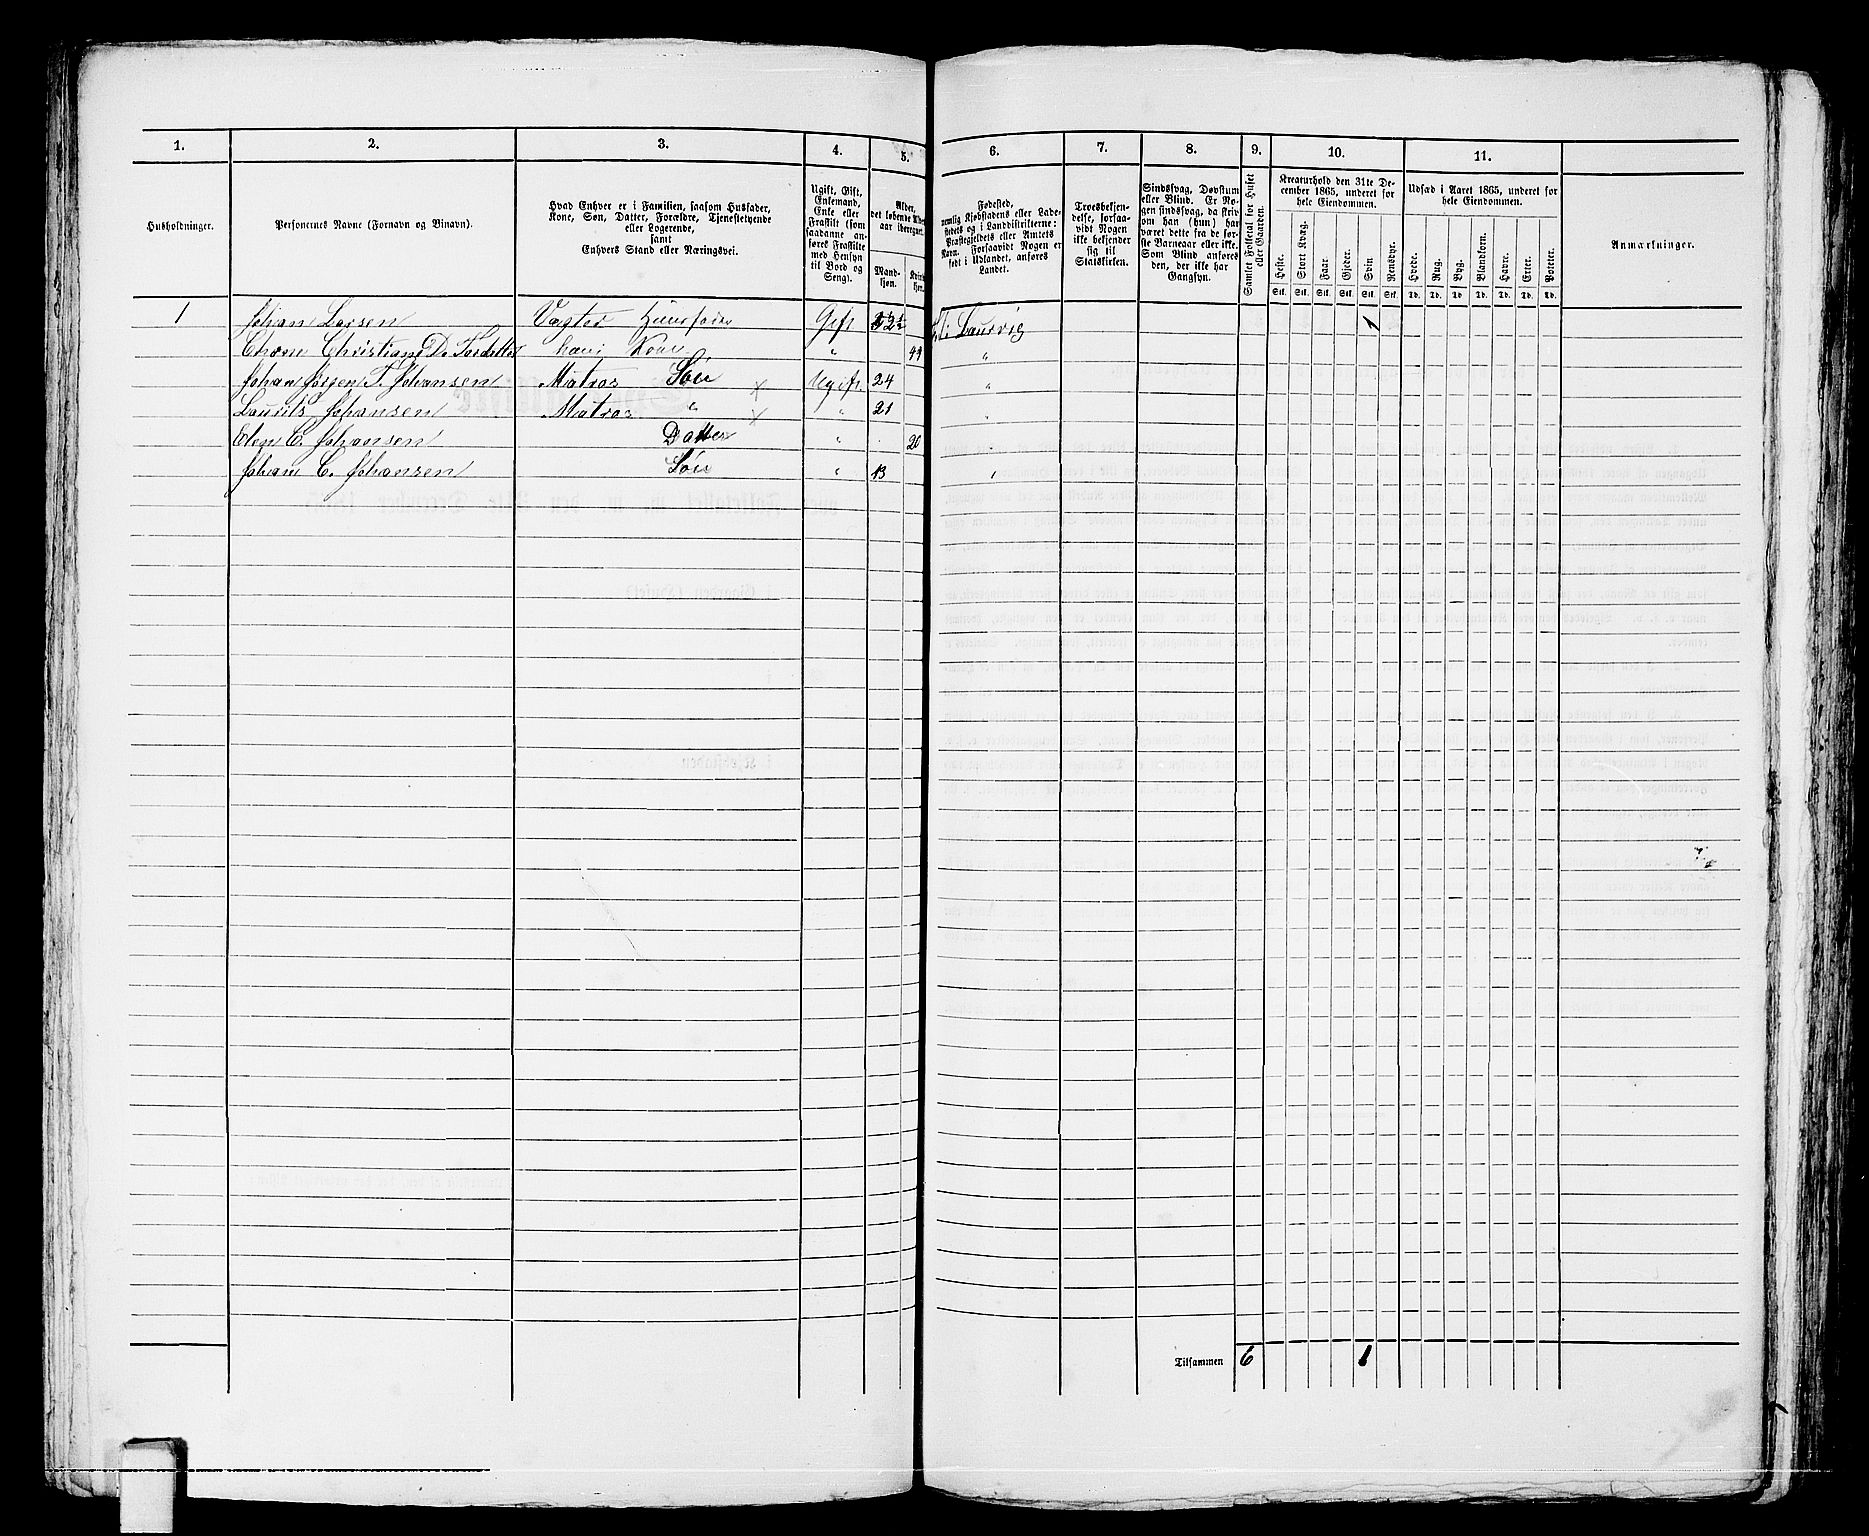 1. 2. 3. 4. 5. 6. 7. 8. 9. 10. 11.
Husholdninger.
Personernes Navne (Fornavn og Binavn).
Hvad Enhver er i Familien, saasom Husfader,
Kone, Søn, Datter, Forældre, Tjenestetyende
eller Logerende,
samt
Enhvers Stand eller Næringsvei.
Ugift, Gift,
Enkemand,
Enke eller
Fraskilt (som
saadanne an-
føres Fraskilte
med Hensyn
til Bord og
Seng).
Alder,
det løbende
aar iberegnet.
Mand-
kjøn.
Kvin-
kjøn.
Fødested,
nemlig Kjøbstadens eller Lade-
stedets og i Landdistrikterne:
Præstegjeldets eller Amtets
Navn. Forsaavidt Nogen er
født i Udlandet, anføres
Landet.
Troesbekjen-
delse, forsaa-
vidt Nogen
ikke bekjender
sig til
Statskirken.
Sindssvag, Døvstum
eller Blind. Er No-
gen sindssvag, da skriv
om han (hun) har
været dette fra de før-
ste Barneaar eller ikke.
Som Blind anføres
den, der ikke har
Gangsyn.
Samlet Folketal for Huset
eller Gaarden.
Kreaturhold den 31te De-
cember 1865, underet for
hele Eiendommen.
Heste. Stort Kvæg. Faar. Gjeder. Svin. Rensdyr.
Stk. Stk. Stk. Stk. Stk. Stk.
Udsæd i Aaret 1865, underet for
hele Eiendommen.
Hvede. Rug. Byg. Blandkorn. Havre. Erter. Poteter.
Td. Td. Td. Td. Td. Td. Td.
Anmærkninger.
1 Johan Larsen Vægter Huusfader Gift Laurvig 1
Christiane D. hans Kone " 44 "
Johan Jørgen T. Johansen Matros Søn × Ugift 24 "
Laurits Johansen Matros " × " 21 "
Elen C. Johansen Datter " 20 "
Johan C. Johansen Søn " 13 "
Tilsammen 6 1